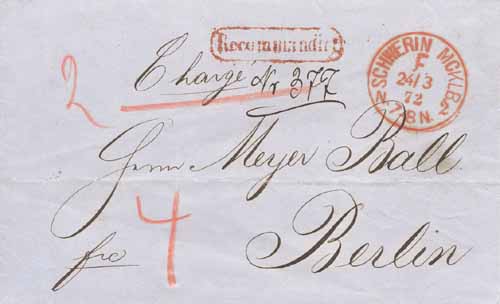 Recommandirt
SCHWERIN MCKLB.
F
24/3
72
N 7-8 N. 2
Chargé Nr 377
2
Herrn Meyer Ball.
4
fro
Berlin